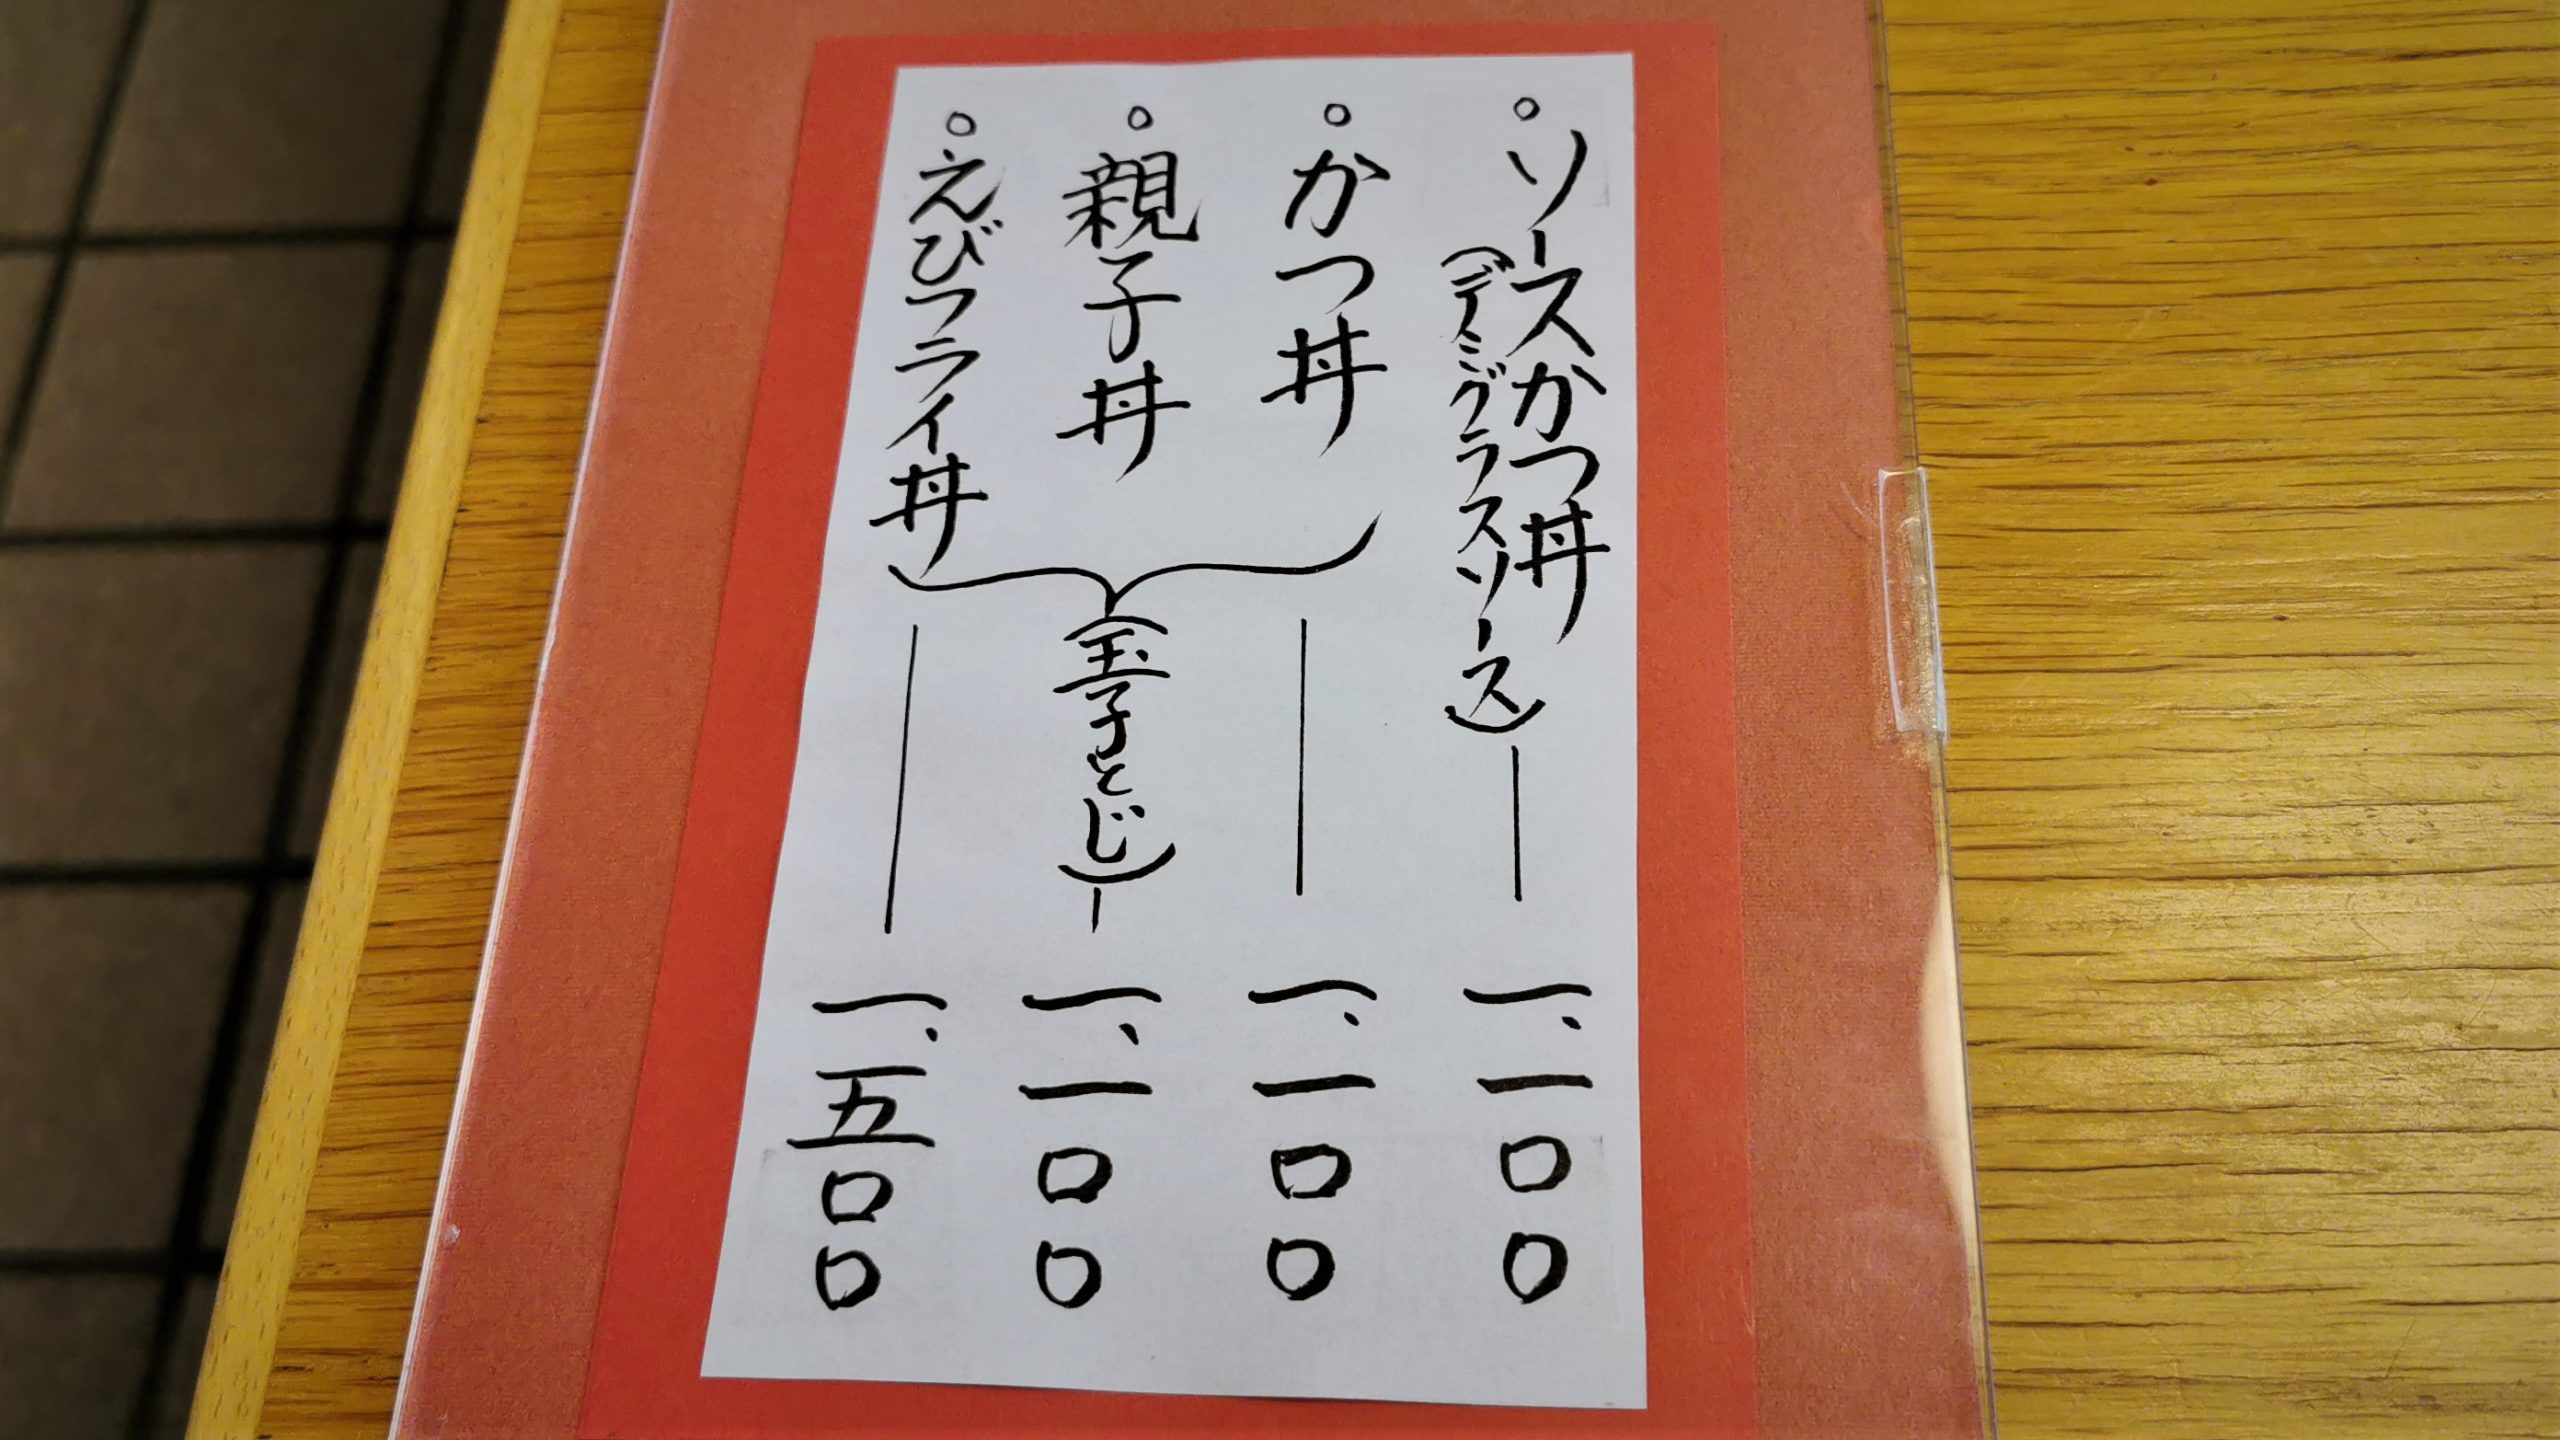 ○ソースかつ丼
(デミグラスソース)―一、一〇〇
○かつ丼―一、一〇〇
○親子丼(玉子とじ)―一、一〇〇
○えびフライ丼―一、五〇〇